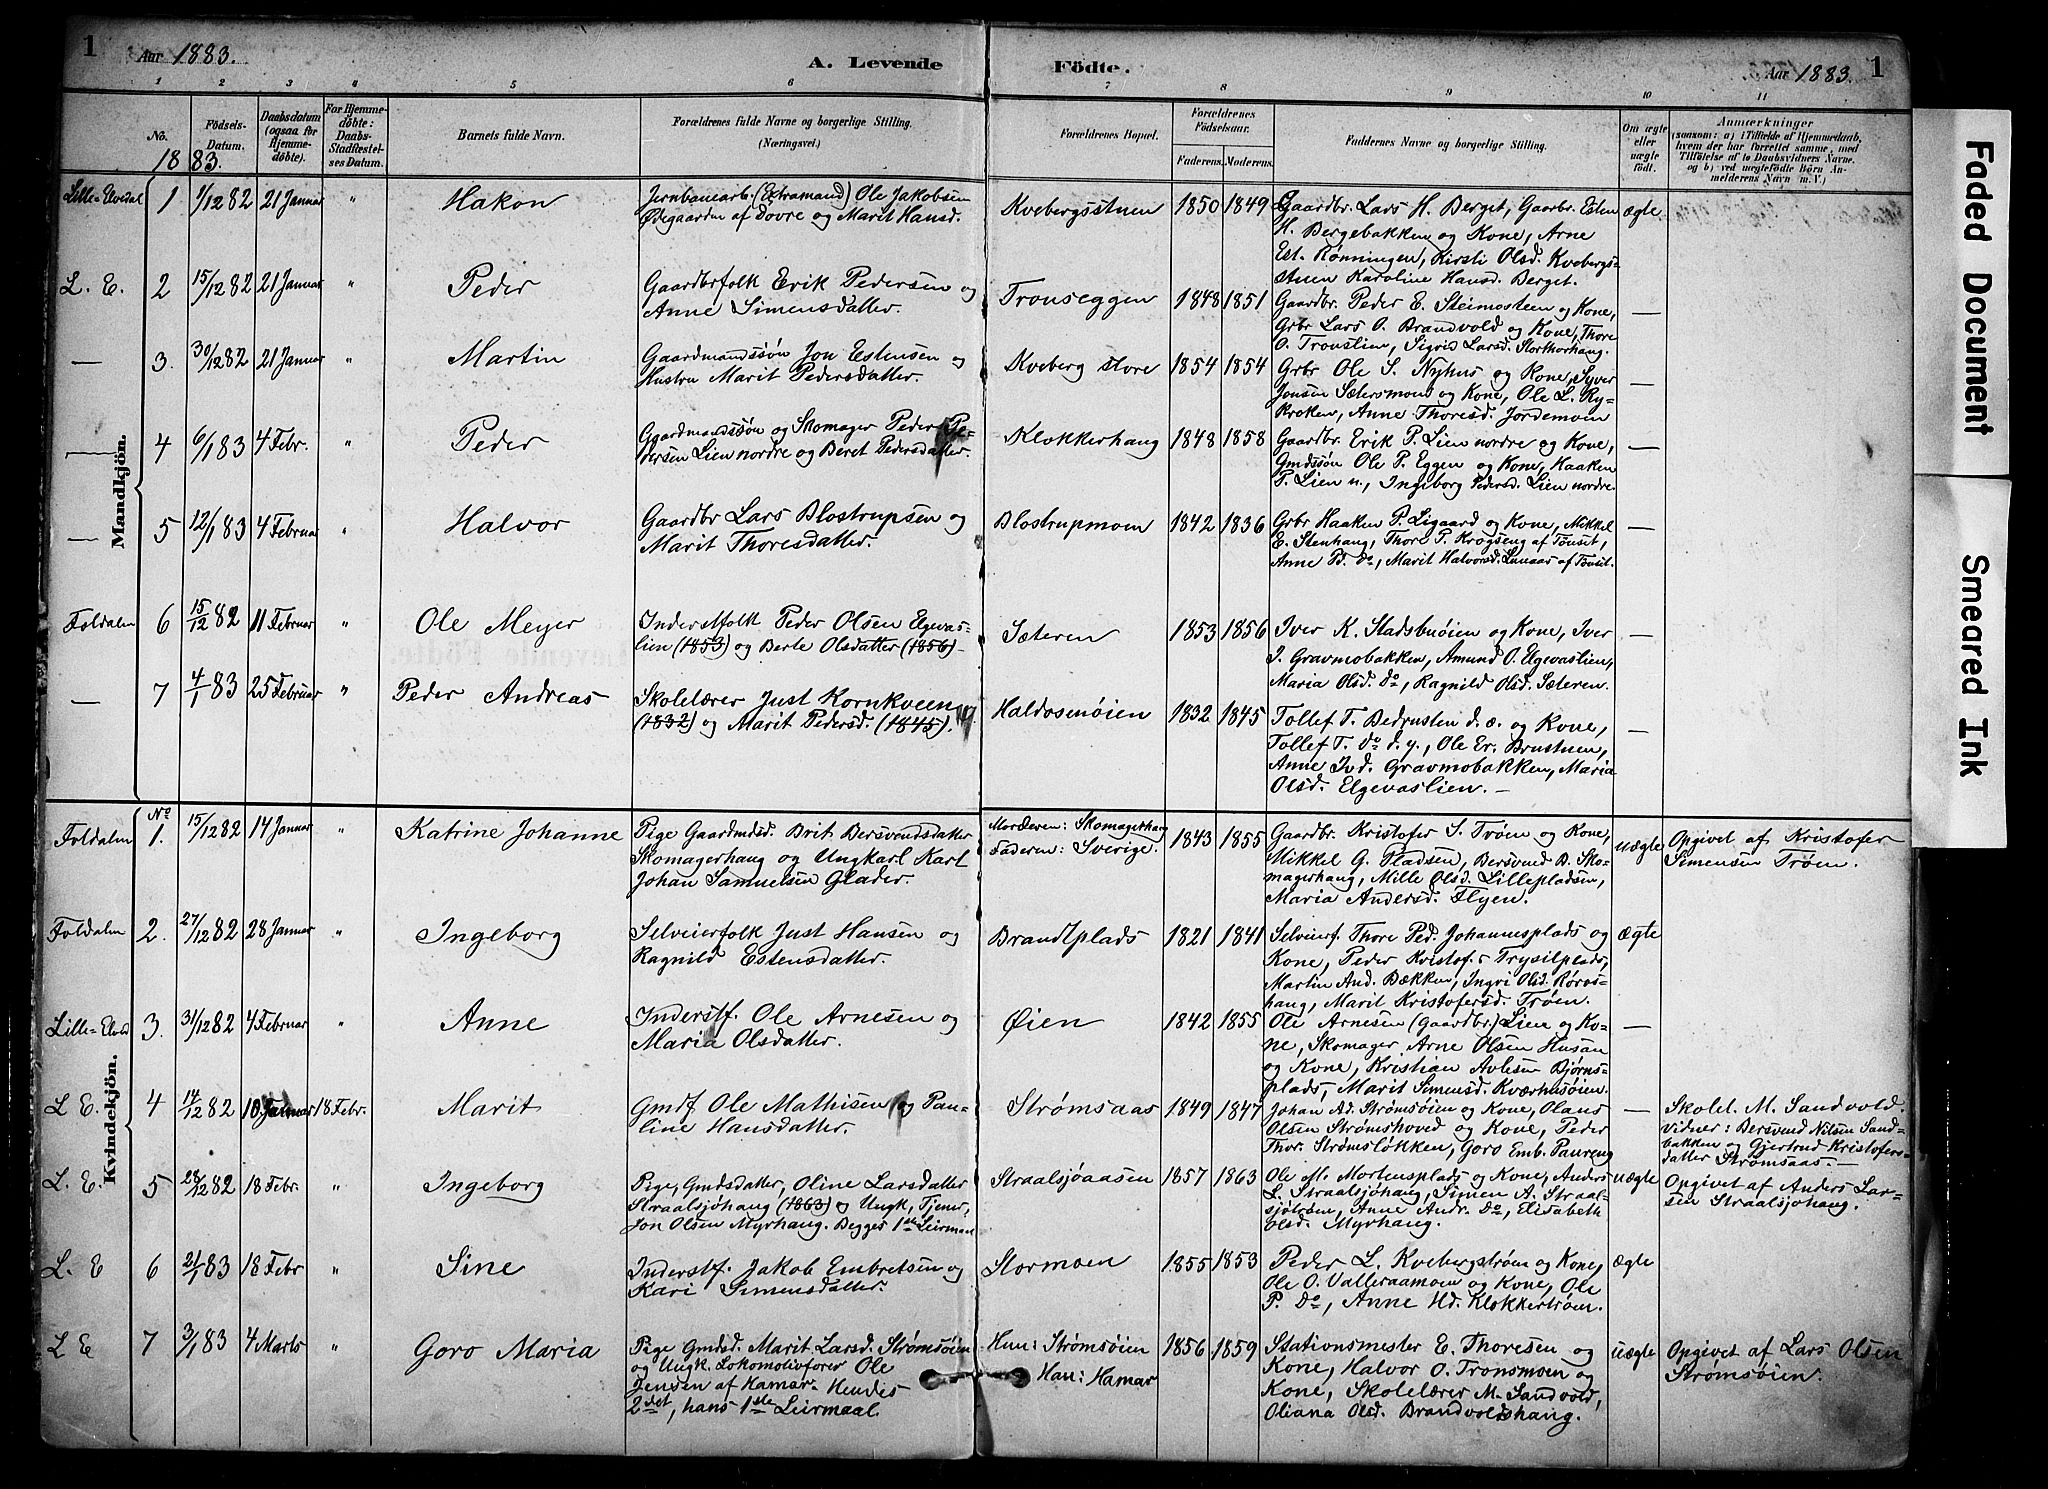 1 Aar 1883. A. Levende Födte. Aar 1883. 1
1 2 3 4 5 6 7 8 9 10 11
No. 1883. Födsels-Datum. Daabsdatum (ogsaa for Hjemme-döbte). For Hjemme-döbte: Daabs-Stadfæstel-ses Datum. Barnets fulde Navn. Forældrenes fulde Navne og borgerlige Stilling. (Næringsvei.) Forældrenes Bopæl. Forældrenes Födselsaar. Faderens. Moderens. Faddernes Navne og borgerlige Stilling. Om ægte eller uægte födt. Anmærkninger
(saasom: a) i Tilfælde af Hjemmedaab,
hvem der har forrettet samme, med
Tilföielse af to Daabsvidners Navne.
og b) ved uægtefödte Börn An-
melderens Navn m. V.)
Mandkjön.
Lille-Elvedal 1 1/12 82 21 Januar " Hakon Jernbanearb. (Extramand) Ole Jakobsen
Ødegaarden af Dovre og Marit Hansd. Kvebergsstuen 1850 1849 Gaardbr. Lars H. Berget, Gaarbr. Esten
H. Bergebakken og Kone, Arne
Est. Rønningen, Kirsti Olsd. Kvebergs-
stuen Karoline Hansd. Berget. ægte
L. E. 2 15/12 82 21 Januar " Peder Gaardbrfolk Erik Pedersen og
Anne Simensdatter. Tronseggen 1848 1851 Gaardbr. Peder E. Steimosteen og Kone,
Grbr Lars O. Brandvold og Kone, Thore
O. Tronslien, Sigrid Larsd. Storthorhang. —
— 3. 30/12 82 21 Januar " Martin Gaardmandssøn Jon Estensen og
Hustru Marit Pedersdatter. Kveberg store 1854 1854 Grbr Ole S. Nyhus og Kone, Syver
Jonsen Sætersmoen og Kone, Ole L. Ry-
kroken, Anne Thoresd. Jordemoen —
— 4 6/1 83 4 Febr. " Peder Gaardmandssøn og Skomager Peder Pe-
dersen Lien nordre og Beret Pedersdatter. Klokkerhang 1848 1858 Gaardbr. Erik P. Lien nordre og Kone,
Gmdssøn Ole P. Eggen og Kone, Haaken
P. Lien n., Ingeborg Pedersd. Lien nordre. —
— 5 12/1 83 4 Februar " Halvor Gaardbr Lars Blostrupsen og
Marit Thoresdatter. Blostrupmoen 1842 1836 Grbr Haaken P. Ligaard og Kone, Mikkel
E. Stenhang, Thore P. Krogseng af Tønset,
Anne P. Do, Marit Halvorsd. Lunaas af Tønset. —
Foldalen 6 15/12 82 11 Februar " Ole Meyer Inderstfolk Peder Olsen Elgevas-
lien (1853) og Berte Olsdatter (1856) Sæteren 1853 1856 Iver K. Stadsbuøien og Kone, Iver
J. Gravmobakken, Amund O. Elgevaslien,
Maria Olsd. Do, Ragnild Olsd. Sæteren. —
— 7 4/1 83 25 Februar " Peder Andreas Skolelærer Just Kornkveen
(1832) og Marit Pedersd. (1845). Haldosenøien 1832 1845 Tollef T. Bedrusten d. æ. og Kone,
Tollef T. do d. y., Ole Er. Brustuen,
Anne Ivd. Gravmobakken, Maria
Olsd. Elgevaslien. — —
Kvindekjön.
Foldalen No 1. 15/12 82 14 Januar " Katrine Johanne Pige Gaardmdsd. Brit Bersvendsdatter
Skomagerhang og Ungkarl Karl
Johan Samuelsen Glader. Moderen: Skomagerhang
Faderen: Sverige. 1843 1855 Gaardbr. Kristofer S. Trøen og Kone,
Mikkel G. Pladsen, Bersvend B. Sko-
magerhang, Mille Olsd. Lillepladsen,
Maria Andersd. Flyen. uægte Opgivet af Kristofer
Simensen Trøen.
Foldalen 2. 27/12 82 28 Januar " Ingeborg Selveierfolk Just Hansen og
Ragnild Estensdatter. Brandtplads 1821 1841 Selveierf. Thore Ped. Johannesplads og
Kone, Peder Kristofs. Trysilplads,
Martin And. Bækken, Ingri Olsd. Røros-
hang, Marit Kristofersd. Trøen. ægte
Lille-Elved 3. 31/12 82 4 Februar " Anne Inderstf. Ole Arnesen og
Maria Olsdatter. Øien 1842 1855 Ole Arnesen (Gaardbr.) Lien og Ko-
ne, Skomager Arne Olsen Husan
og Kone, Kristian Avlesen Bjørns-
plads, Marit Simensd. Kværnusøien. —
L E. 4 14/12 82 10 Januar 18 Febr. Marit Gmdf Ole Mathisen og Pau-
line Hansdatter. Strømsaas 1849 1847 Johan Ad. Strømsøien og Kone, Olaus
Olsen Strømshoved og Kone, Peder
Thor. Strømsløkken, Goro Emb. Paureng — Skolel. M. Sandvold.
Vidner: Bersvend Nilsen Sand-
bakken og Gjertrud Kristofers-
datter Strømsaas.—
L. E. 5 28/12 82 18 Febr. " Ingeborg Pige, Gmdsdatter, Oline Larsdatter
Straalsjøhang (1863) og Ungk, Tjener,
Jon Olsen Myrhang. Begges 1ste Leirmaal Straalsjøaasen 1857 1863 Ole M. Mortensplads og Kone, Anders
L. Straalsjøhang, Simen A. Straal-
sjøtrøen, Anne Andr. Do, Elisabeth
Olsd. Myrhang. uægte Opgivet af Anders Lar-
sen Straalsjøhang.
L. E 6 21/1 83 18 Febr " Sine Inderstf. Jakob Embretsen og
Kari Simensdatter. Stormoen 1855 1853 Peder L. Kvebergstrøen og Kone,
Ole O. Valleraamoen og Kone, Ole
P. Do, Anne Hd. Klokkertrøen. ægte
L E 7 3/1 83 4 Marts " Goro Maria Pige Gmdsd. Marit Larsd. Strømsøien
og Ungk. Lokomotivfører Ole
Jensen af Hamar. Hendes
2det, hans 1ste Leirmaal. Hun: Strømsøien
Han: Hamar 1856 1859 Stationsmester E. Thoresen og
Kone, Halvor O. Tronsmoen og
Kone, Skolelærer M. Sandvold,
Oliana Olsd. Brandvoldshang. uægte Opgivet af Lars Olsen
Strømsøien.
Faded Document
Smeared Ink